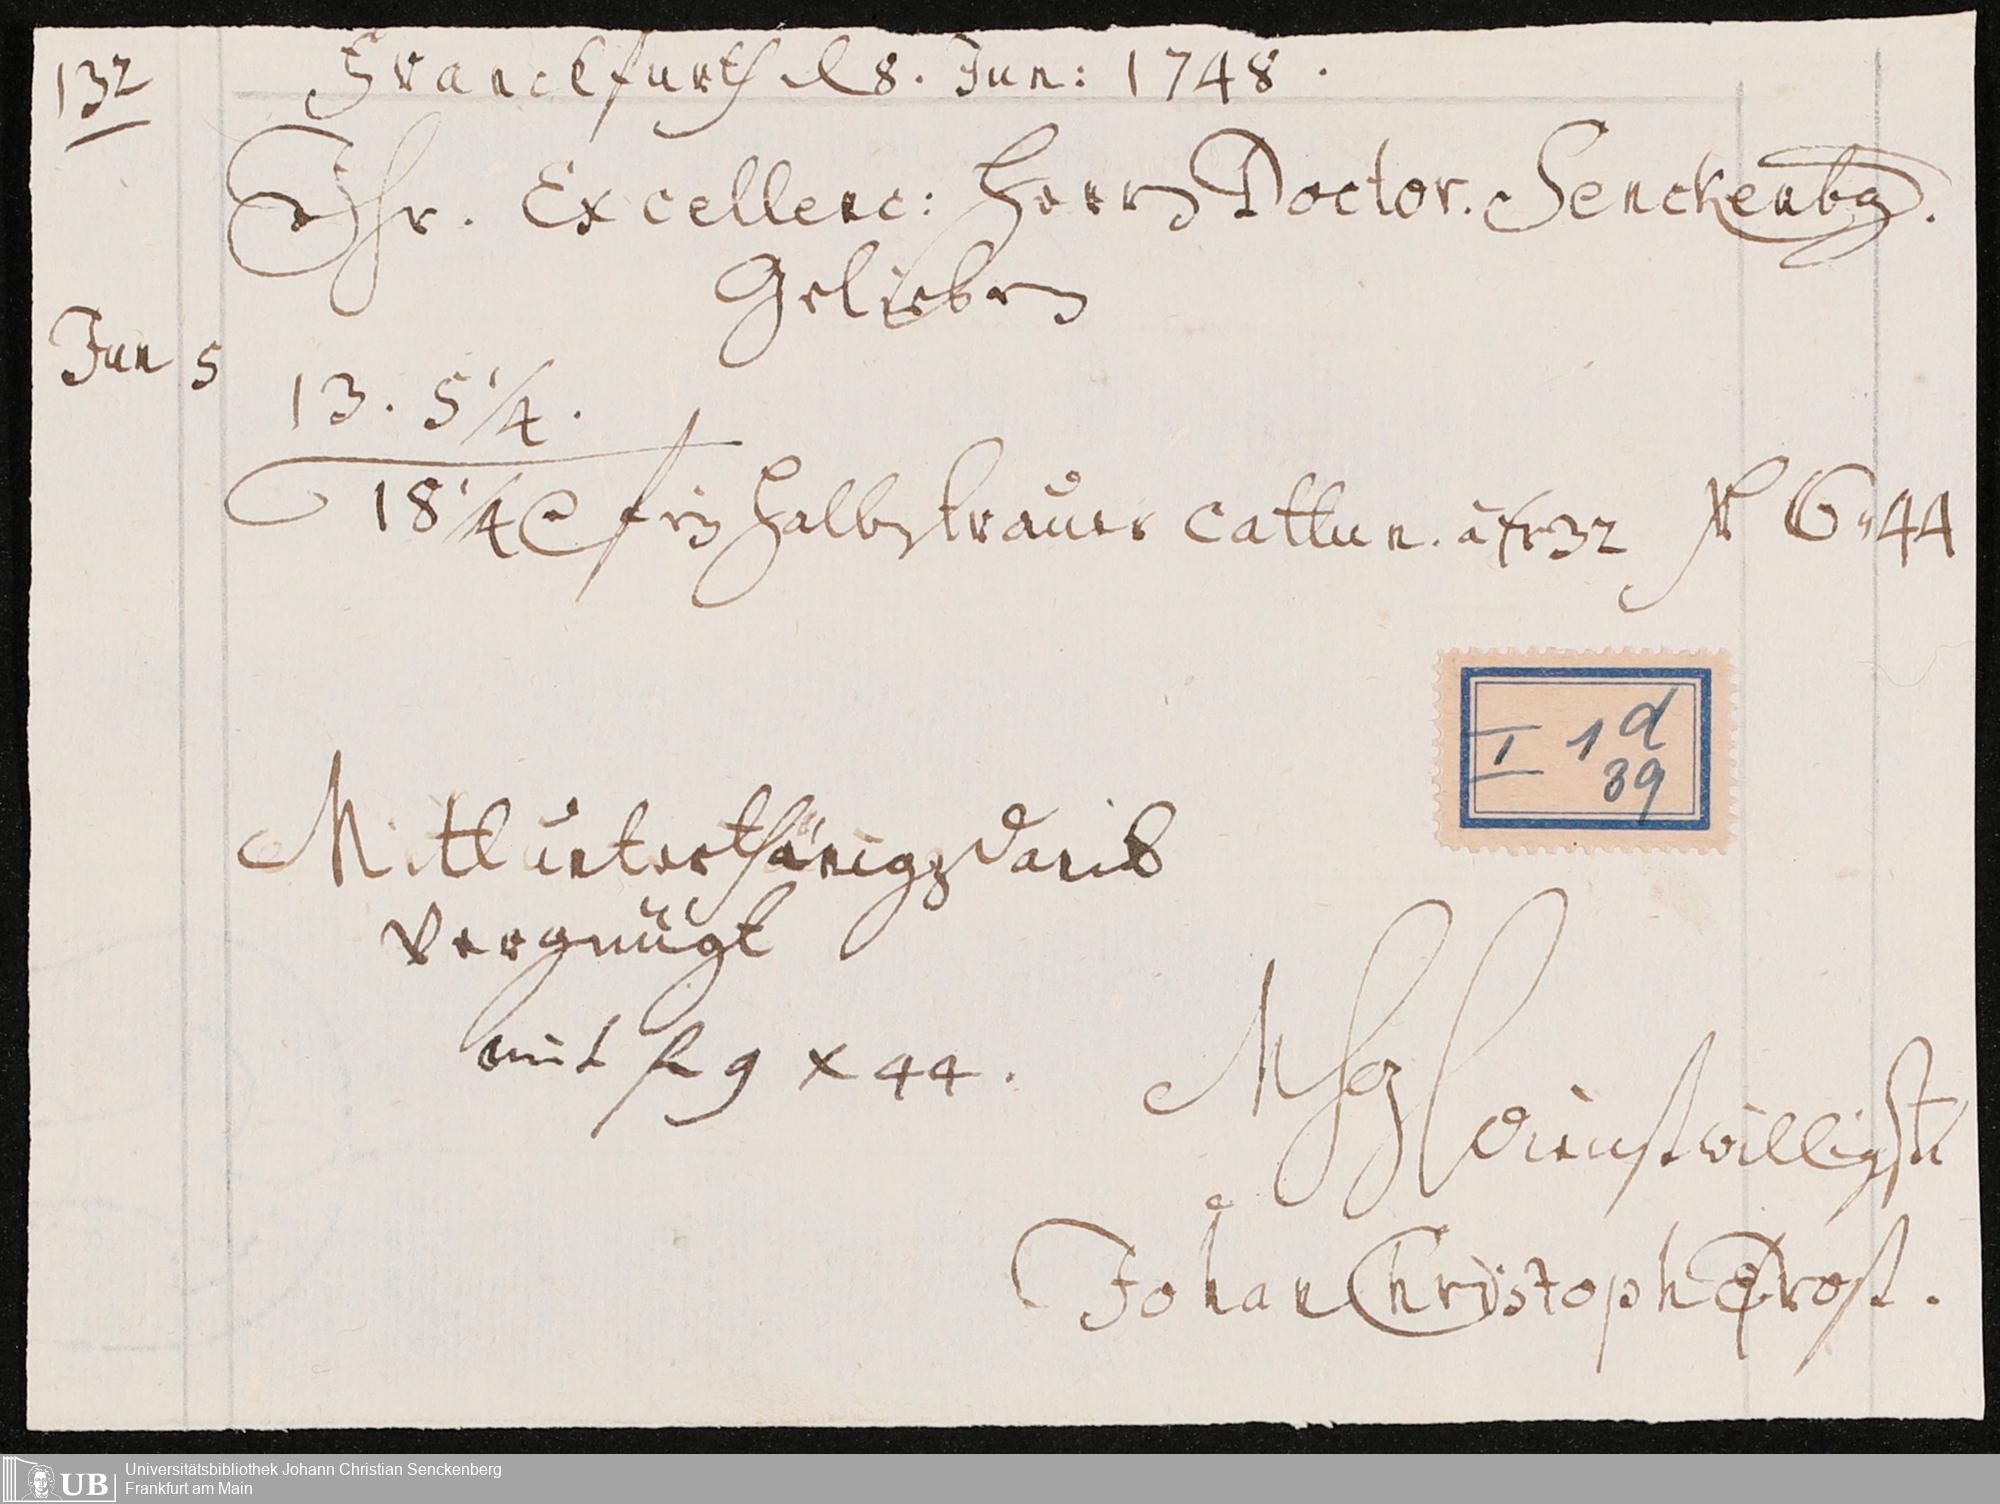 132
Franckfurth d 8. Jun: 1748.
Ihr. Excellenc: Herrn Doctor. Senckenbg.
Gelieben
Jun 5
13. 5 1/4.
18 1/4 e fein halbtrauer Cattun. à xr 32 f 9 "44
I 1 d
39
Mitt unterthänigs danck
vergnügt
mit f 9 x 44.
dienstwilligst
Johan Christoph Prost.
UB
Universitätsbibliothek Johann Christian Senckenberg
Frankfurt am Main